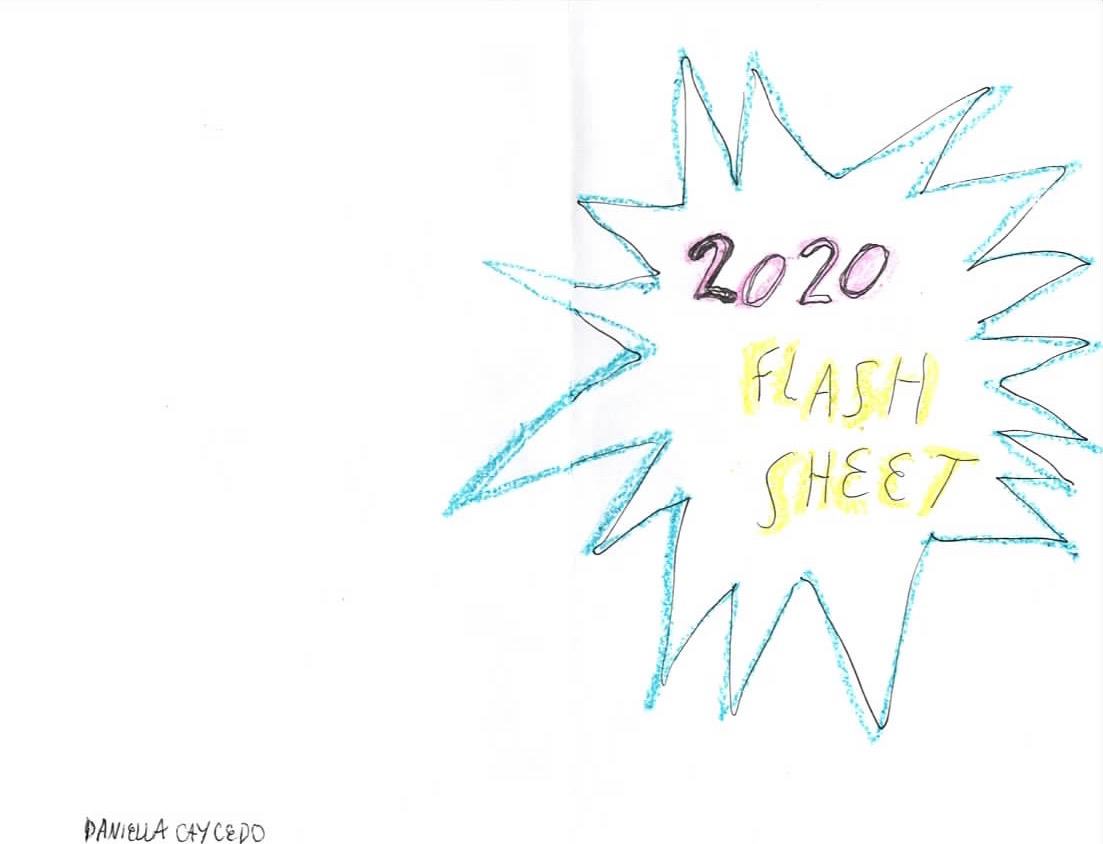 2020
FLASH
SHEET
DANIELLA CAYCEDO